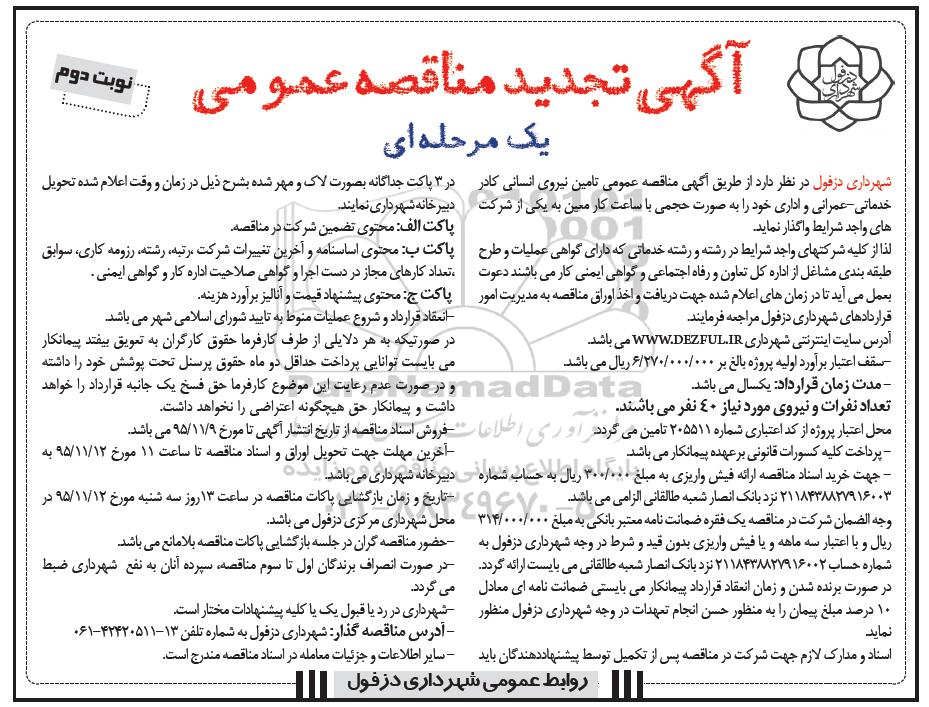 آگهی تجدید مناقصه عمومی
یک مرحله‌ای
نوبت دوم
شهرداری دزفول در نظر دارد از طریق آگهی مناقصه عمومی تامین نیروی انسانی کادر
خدماتی-عمرانی و اداری خود را به صورت حجمی با ساعت کار معین به یکی از شرکت
های واجد شرایط واگذار نماید.
لذا از کلیه شرکتهای واجد شرایط در رشته و رشته خدماتی که دارای گواهی عملیات و طرح
طبقه بندی مشاغل از اداره کل تعاون و رفاه اجتماعی و گواهی ایمنی کار می باشند دعوت
بعمل می آید تا در زمان های اعلام شده جهت دریافت و اخذ اوراق مناقصه به مدیریت امور
قراردادهای شهرداری دزفول مراجعه فرمایند.
آدرس سایت اینترنتی شهرداری WWW.DEZFUL.IR می باشد.
-سقف اعتبار برآورد اولیه پروژه بالغ بر ۶/۲۷۰/۰۰۰/۰۰۰ ریال می باشد.
- مدت زمان قرارداد: یکسال می باشد.
تعداد نفرات و نیروی مورد نیاز ۴۰ نفر می باشند.
محل اعتبار پروژه از کد اعتباری شماره ۲۰۵۵۱۱ تامین می گردد.
- پرداخت کلیه کسورات قانونی برعهده پیمانکار می باشد.
- جهت خرید اسناد مناقصه ارائه فیش واریزی به مبلغ ۳۰۰/۰۰۰ ریال به حساب شماره
۲۱۱۸۴۳۸۸۲۷۹۱۶۰۰۳ نزد بانک انصار شعبه طالقانی الزامی می باشد.
وجه الضمان شرکت در مناقصه یک فقره ضمانت نامه معتبر بانکی به مبلغ ۳۱۴/۰۰۰/۰۰۰
ریال و با اعتبار سه ماهه و یا فیش واریزی بدون قید و شرط در وجه شهرداری دزفول به
شماره حساب ۲۱۱۸۴۳۸۸۲۷۹۱۶۰۰۲ نزد بانک انصار شعبه طالقانی می بایست ارائه گردد.
در صورت برنده شدن و زمان انعقاد قرارداد پیمانکار می بایستی ضمانت نامه ای معادل
۱۰ درصد مبلغ پیمان را به منظور حسن انجام تعهدات در وجه شهرداری دزفول منظور
نماید.
اسناد و مدارک لازم جهت شرکت در مناقصه پس از تکمیل توسط پیشنهاددهندگان باید
در ۳ پاکت جداگانه بصورت لاک و مهر شده بشرح ذیل در زمان و وقت اعلام شده تحویل
دبیرخانه شهرداری نمایند.
پاکت الف: محتوی تضمین شرکت در مناقصه.
پاکت ب: محتوی اساسنامه و آخرین تغییرات شرکت ،رتبه، رشته، رزومه کاری، سوابق
،تعداد کارهای مجاز در دست اجرا و گواهی صلاحیت اداره کار و گواهی ایمنی .
پاکت ج: محتوی پیشنهاد قیمت و آنالیز برآورد هزینه.
-انعقاد قرارداد و شروع عملیات منوط به تایید شورای اسلامی شهر می باشد.
در صورتیکه به هر دلایلی از طرف کارفرما حقوق کارگران به تعویق بیفتد پیمانکار
می بایست توانایی پرداخت حداقل دو ماه حقوق پرسنل تحت پوشش خود را داشته
و در صورت عدم رعایت این موضوع کارفرما حق فسخ یک جانبه قرارداد را خواهد
داشت و پیمانکار حق هیچگونه اعتراضی را نخواهد داشت.
-فروش اسناد مناقصه از تاریخ انتشار آگهی تا مورخ ۹۵/۱۱/۹ می باشد.
-آخرین مهلت جهت تحویل اوراق و اسناد مناقصه تا ساعت ۱۱ مورخ ۹۵/۱۱/۱۲ به
دبیرخانه شهرداری می باشد.
-تاریخ و زمان بازگشایی پاکات مناقصه در ساعت ۱۳روز سه شنبه مورخ ۹۵/۱۱/۱۲ در
محل شهرداری مرکزی دزفول می باشد.
-حضور مناقصه گران در جلسه بازگشایی پاکات مناقصه بلامانع می باشد.
-در صورت انصراف برندگان اول تا سوم مناقصه، سپرده آنان به نفع شهرداری ضبط
می گردد.
-شهرداری در رد یا قبول یک یا کلیه پیشنهادات مختار است.
- آدرس مناقصه گذار: شهرداری دزفول به شماره تلفن ۱۳-۴۲۴۲۰۵۱۱-۰۶۱
- سایر اطلاعات و جزئیات معامله در اسناد مناقصه مندرج است.
روابط عمومی شهرداری دزفول
ParsNamadData
پایگاه اطلاع رسانی مناقصه و مزایده
۰۲۱-۸۸۳۴۹۶۷۰-۵